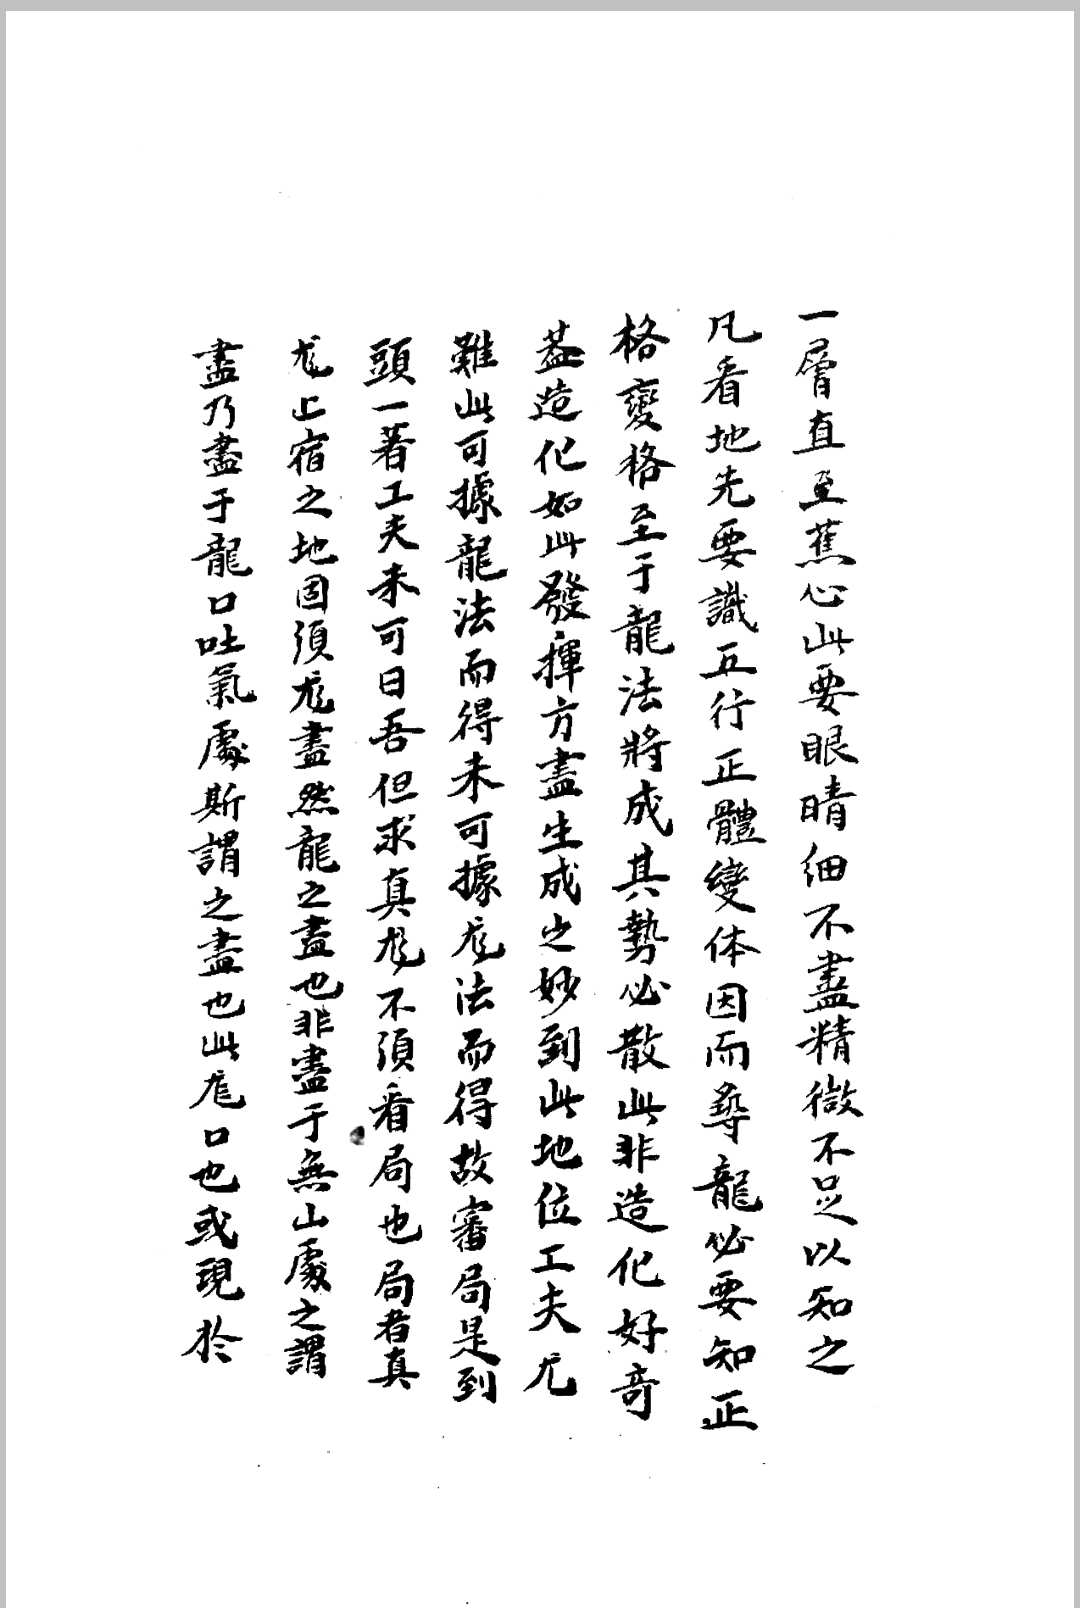 一層直至蕉心此要眼睛細不盡精微不足以知之
凡看地先要識五行正體變体因而尋龍必要知正
格變格至于龍法將成其勢必散此非造化好奇
葢造化如此發揮方盡生成之妙到此地位工夫尤
難此可據龍法而得未可據尨法而得故審局是到
頭一著工夫未可曰吾但求真尨不須看局也局者真
尨止宿之地固須尨盡然龍之盡也非盡于無山處之謂
盡乃盡于龍口吐氣處斯謂之盡也此尨口也或現於